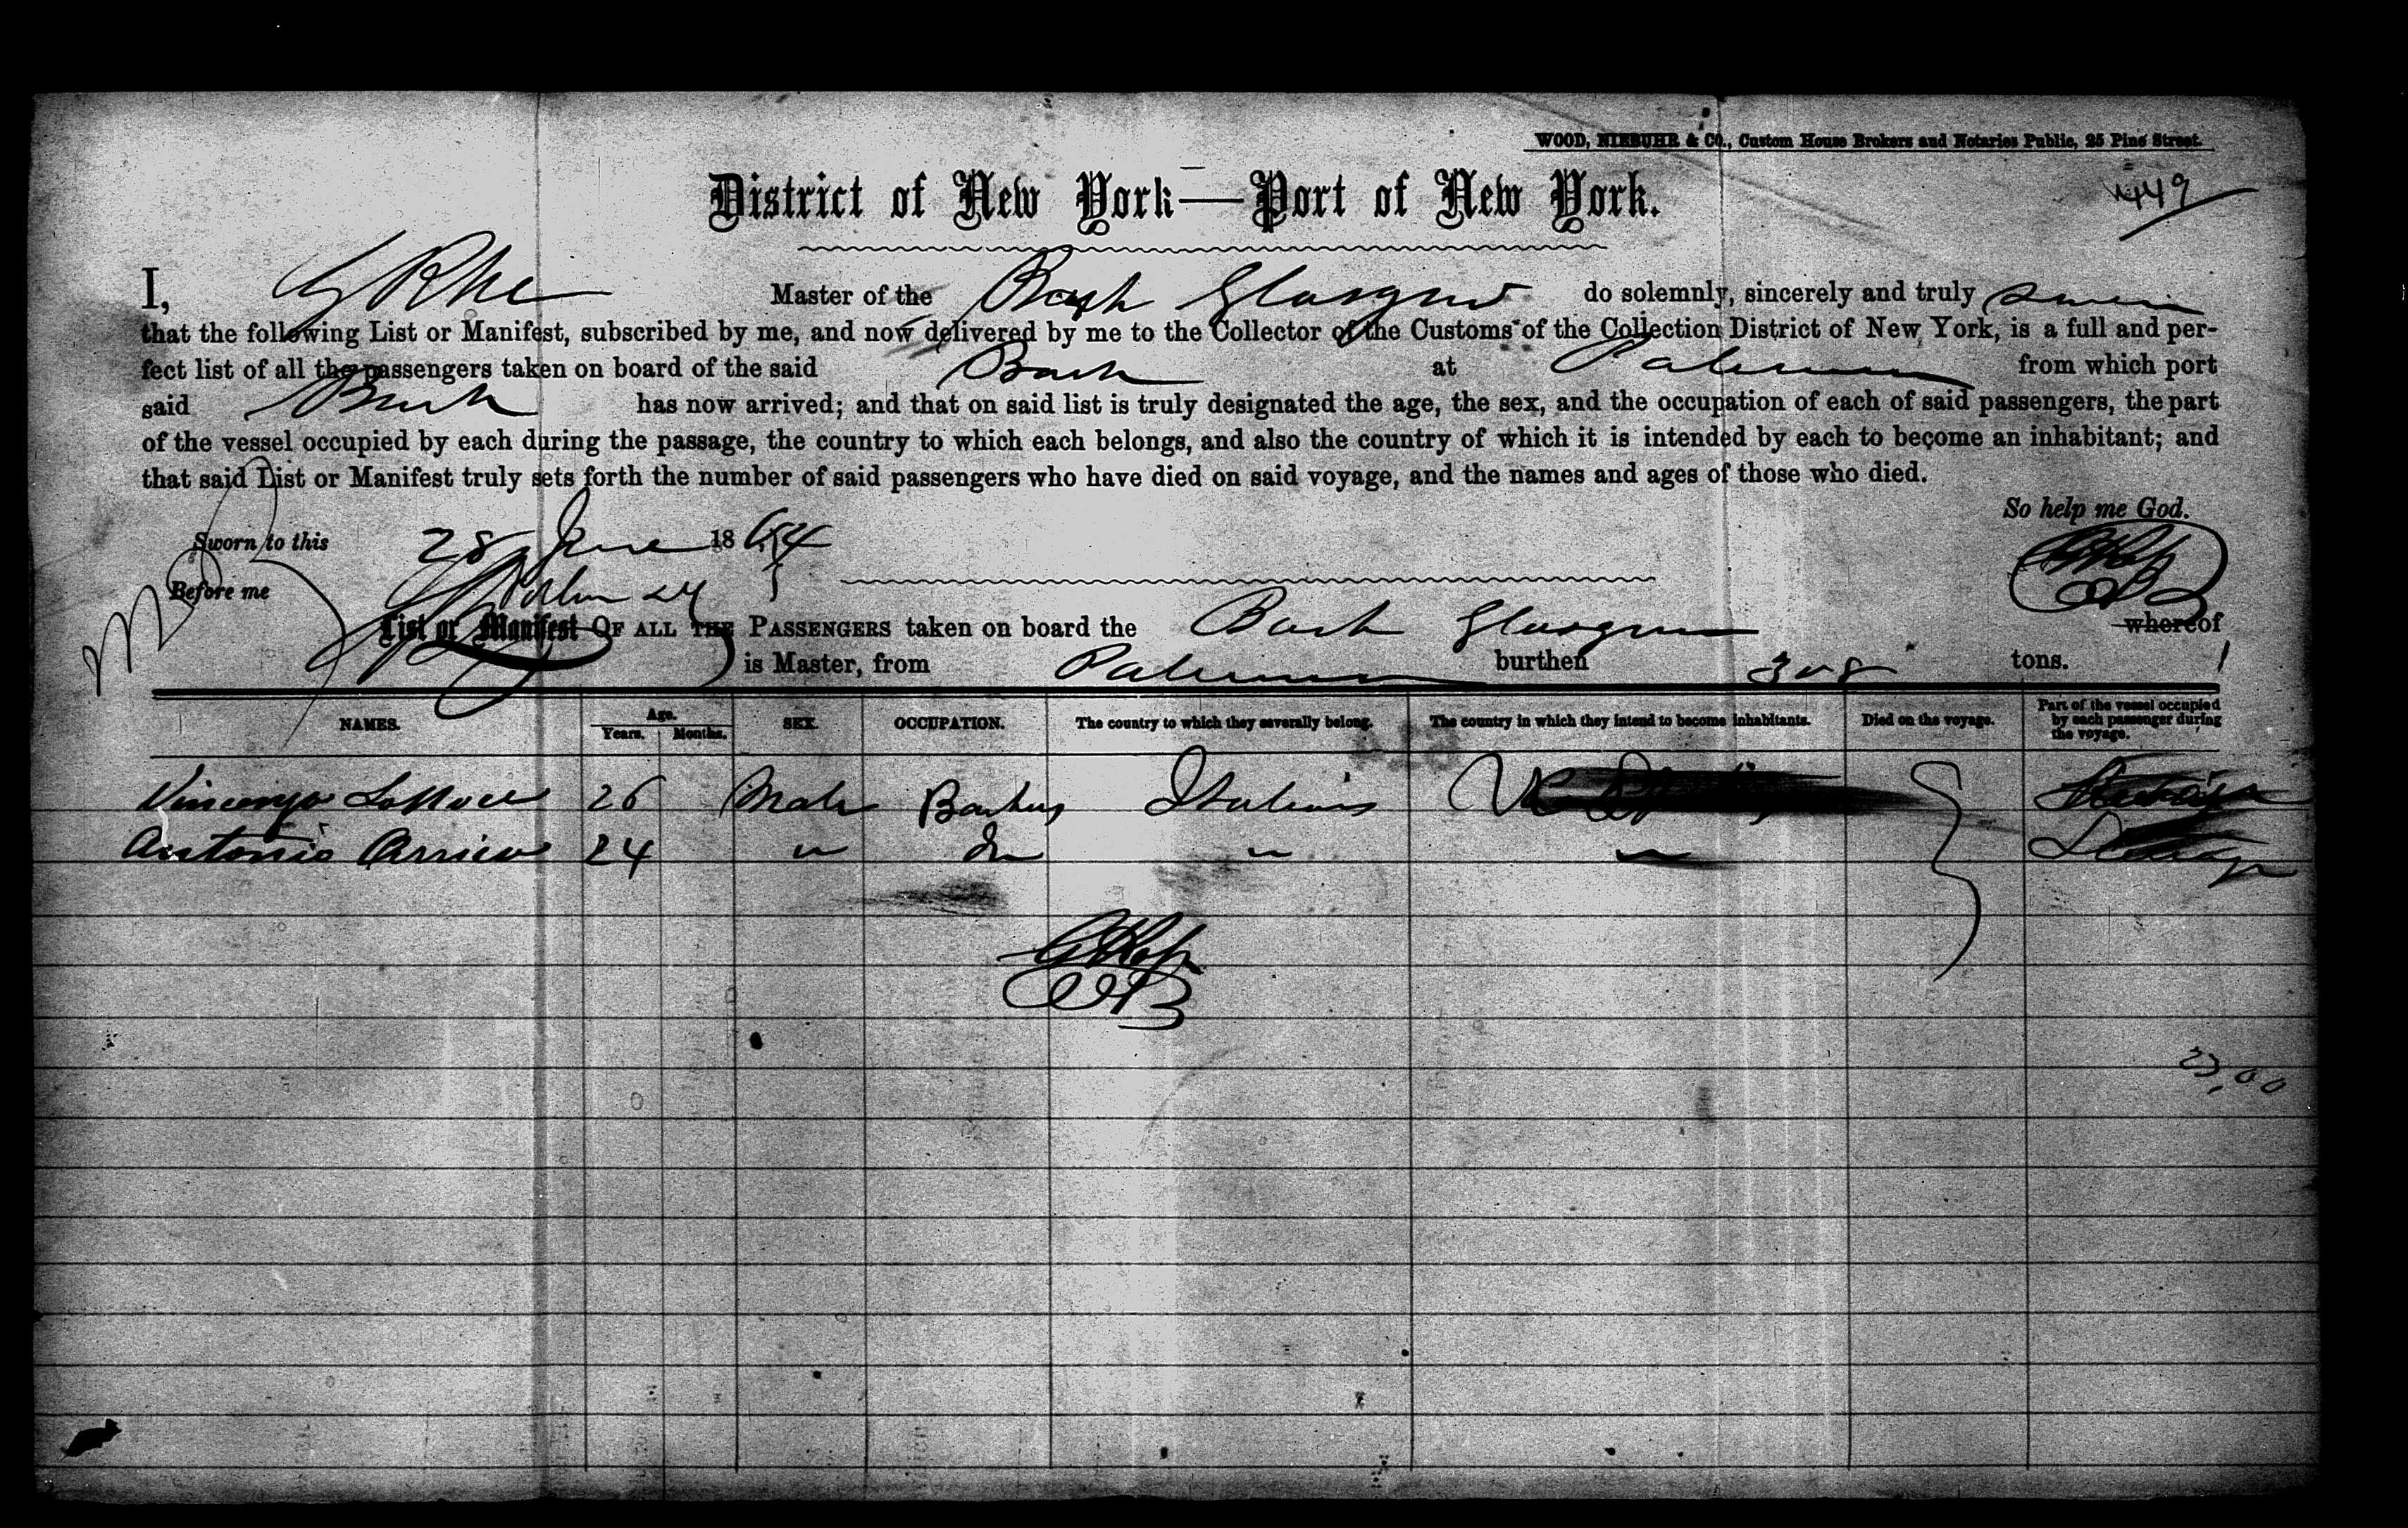 WOOD, NIEBUHR & CO., Custom House Brokers and Notaries Public, 25 Pine Street.
449
District of New York—Port of New York.
I, Master of the Bark Glasgow do solemnly, sincerely and truly swear
that the following List or Manifest, subscribed by me, and now delivered by me to the Collector of the Customs of the Collection District of New York, is a full and per-
fect list of all the passengers taken on board of the said Bark at Palermo from which port
said Bark has now arrived; and that on said list is truly designated the age, the sex, and the occupation of each of said passengers, the part
of the vessel occupied by each during the passage, the country to which each belongs, and also the country of which it is intended by each to become an inhabitant; and
that said List or Manifest truly sets forth the number of said passengers who have died on said voyage, and the names and ages of those who died.
So help me God.
Sworn to this 28 June 1864
Before me
List or Manifest OF ALL THE PASSENGERS taken on board the Bark Glasgow whereof
is Master, from Palermo burthen 308 tons.
NAMES. Age. Years. Months. SEX. OCCUPATION. The country to which they severally belong. The country in which they intend to become inhabitants. Died on the voyage. Part of the vessel occupied by each passenger during the voyage.
Vincenzo 26 Male Italians
Antonio 24 " Do " " Steerage